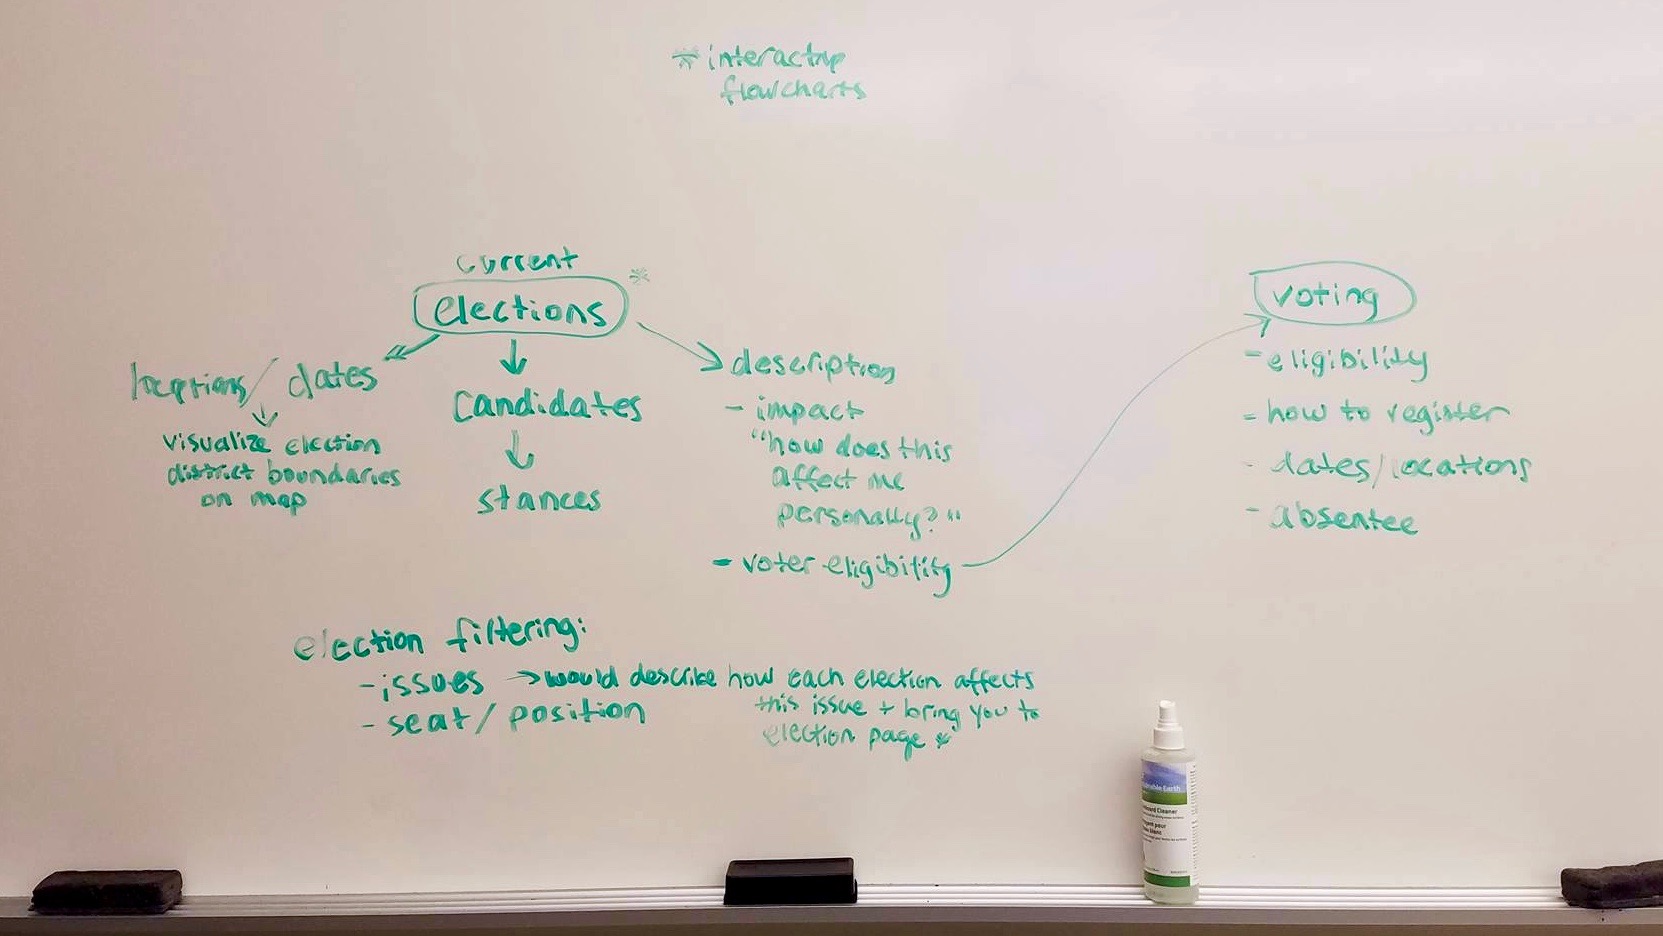 * interactive
flowcharts
current
elections *
locations/ dates
visualize election
district boundaries
on map
candidates
stances
description
- impact
"how does this
affect me
personally?"
- voter eligibility
voting
- eligibility
- how to register
- dates/locations
- absentee
election filtering:
- issues → would describe how each election affects
this issue + bring you to
election page *
- seat/position
Earth
Cleaner